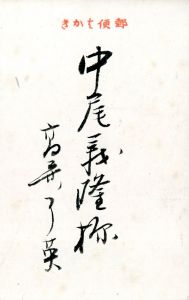 郵便はかき
中尾義隆様
高 了英